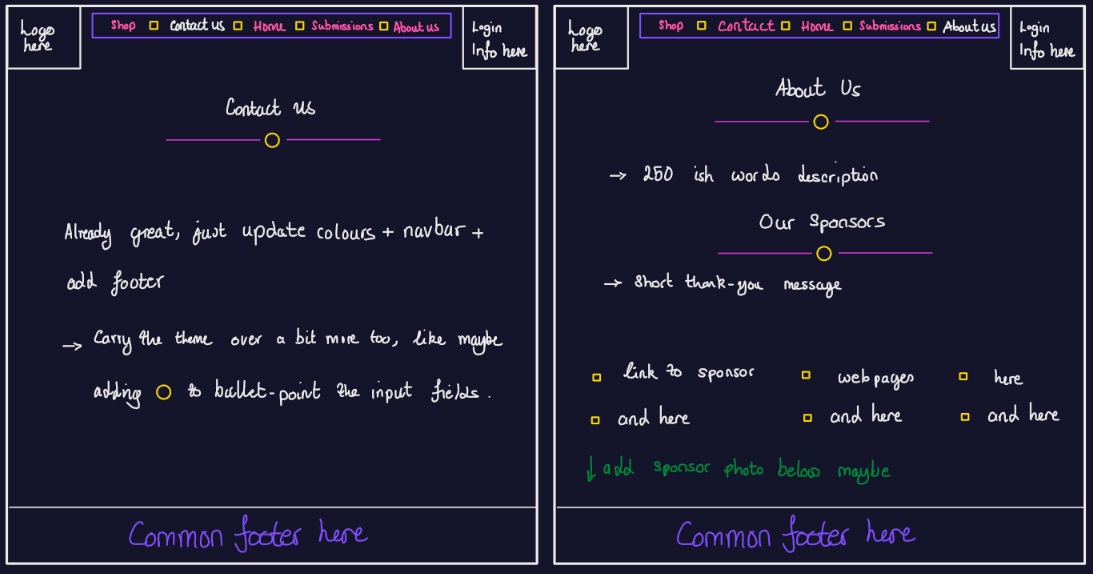 Logo
here
Shop Contact us Home Submissions About us
Login
Info here
Contact us
Already great, just update colours + navbar +
add footer
→ Carry the theme over a bit more too, like maybe
adding ○ to bullet-point the input fields.
Common footer here
Logo
here
Shop Contact Home Submissions About us
Login
Info here
About Us
→ 250 ish words description
Our Sponsors
→ Short thank-you message
link to sponsor web pages here
and here and here and here
↓ add sponsor photo below maybe
Common footer here